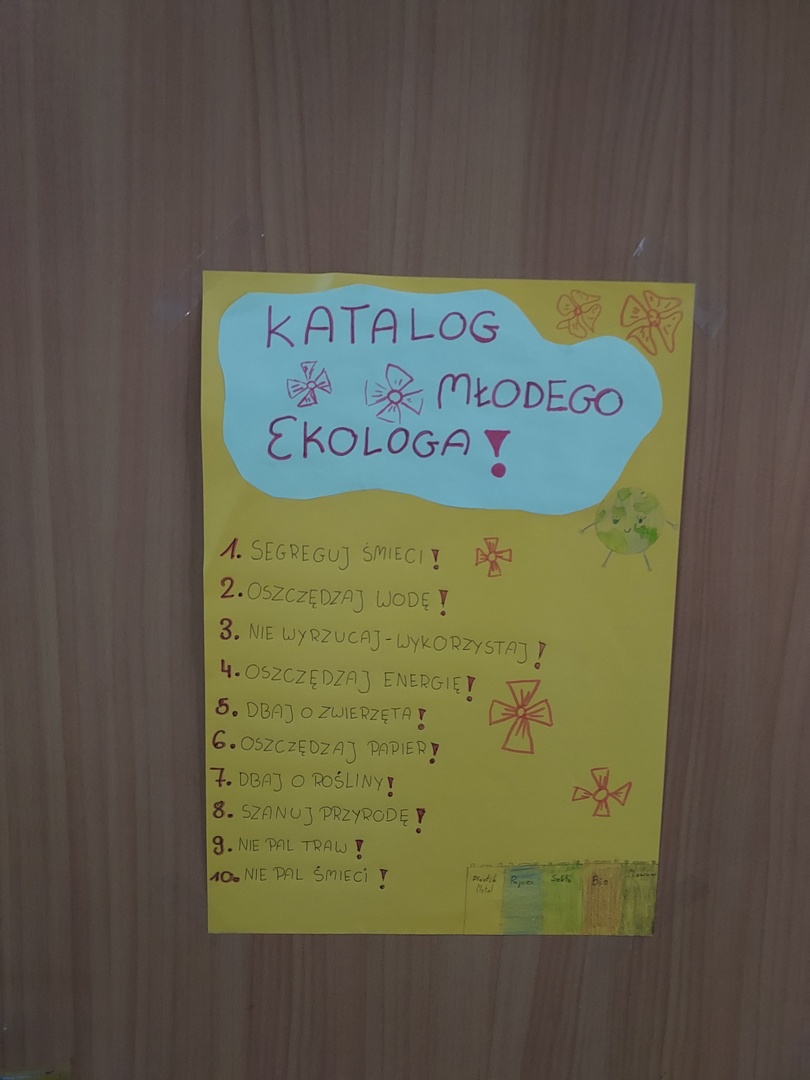 KATALOG
MŁODEGO
EKOLOGA!
1. SEGREGUJ ŚMIECI!
2. OSZCZĘDZAJ WODĘ!
3. NIE WYRZUCAJ-WYKORZYSTAJ!
4. OSZCZĘDZAJ ENERGIĘ!
5. DBAJ O ZWIERZĘTA!
6. OSZCZĘDZAJ PAPIER!
7. DBAJ O ROŚLINY!
8. SZANUJ PRZYRODĘ!
9. NIE PAL TRAW!
10. NIE PAL ŚMIECI!
Papier Szkło Bio